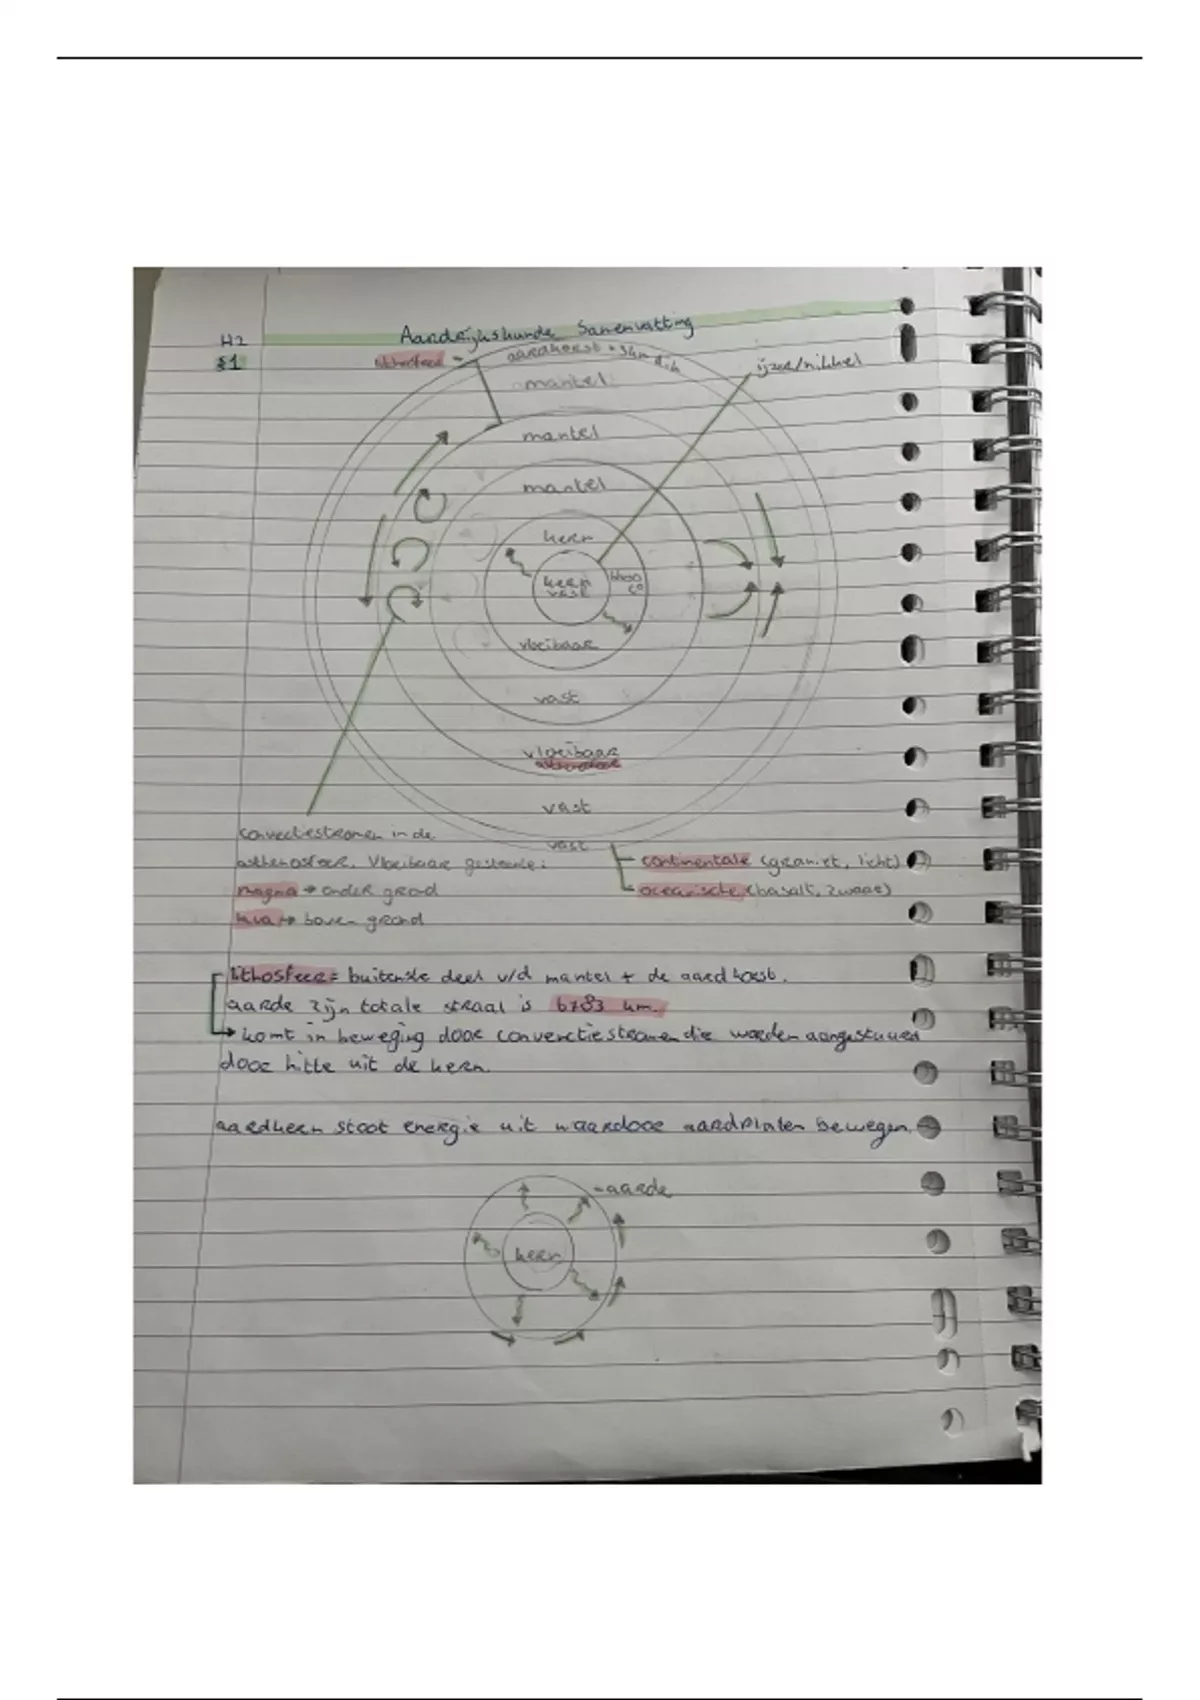 H2 Aardrijkskunde Samenvatting
§1 lithosfeer - aardkorst
ijzer/nikkel
mantel
mantel
mantel
kern
kern
vast
C°
vloeibaar
vast
vloeibaar
vast
vast
convectiestromen in de
asthenosfeer. Vloeibaar gesteente:
magma → onder grond
lava → boven grond
continentale (graniet, licht)
oceanische (basalt, zwaar)
lithosfeer = buitenste deel v/d mantel + de aardkorst.
aarde zijn totale straal is 6783 km.
→ komt in beweging door convenctiestromen die worden aangestuurd
door hitte uit de kern.
aardkern stoot energie uit waardoor aardplaten bewegen.
- aarde
kern